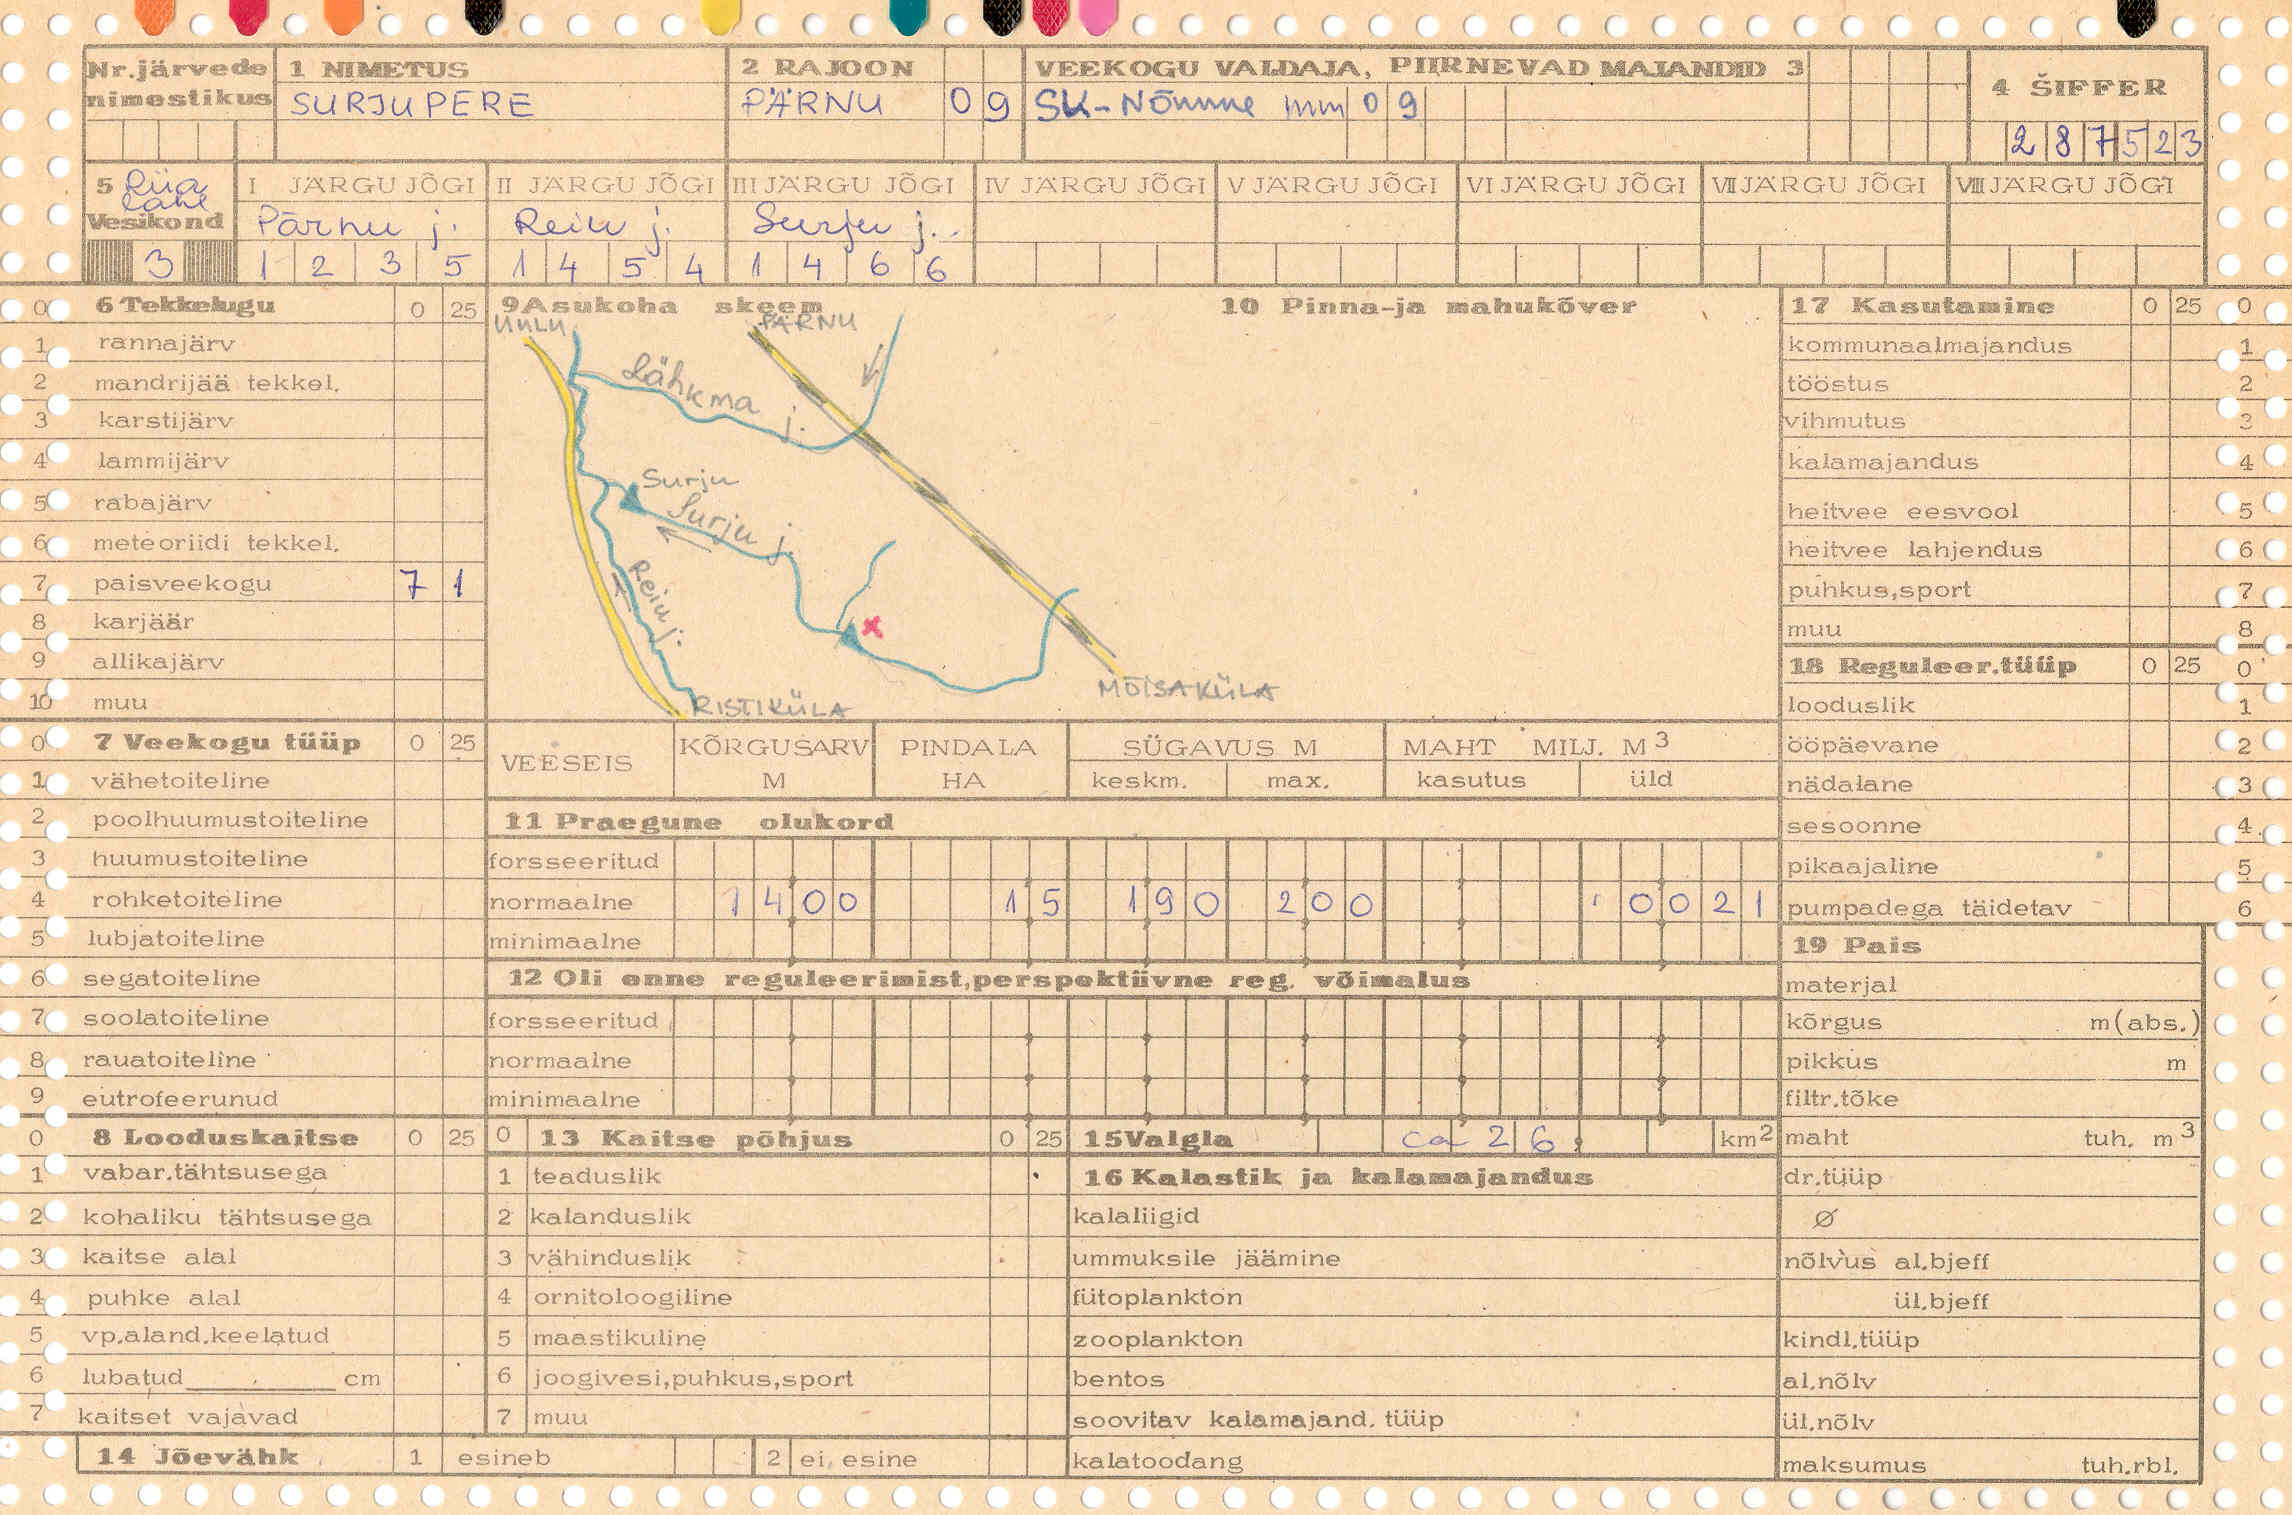 Nr.järvede 1 NIMETUS 2 RAJOON VEEKOGU VALDAJA, PIIRNEVAD MAJANDID 3
nimestikus SURJUPERE PÄRNU 0 9 SK-Nõmme mm 0 9 4 ŠIFFER
2 8 7 5 2 3
5 Riia I JÄRGU JÕGI II JÄRGU JÕGI III JÄRGU JÕGI IV JÄRGU JÕGI V JÄRGU JÕGI VI JÄRGU JÕGI VII JÄRGU JÕGI VIII JÄRGU JÕGI
laht
Vesikond Pärnu j. Reiu j. Surju j.
3 1 2 3 5 1 4 5 4 1 4 6 6
0 6 Tekkelugu 0 25
1 rannajärv
2 mandrijää tekkel.
3 karstijärv
4 lammijärv
5 rabajärv
6 meteoriidi tekkel.
7 paisveekogu 7 1
8 karjäär
9 allikajärv
10 muu
9 Asukoha skeem 10 Pinna-ja mahukõver
UULU PÄRNU
Lähkma j.
Surju
Surju j.
Reiu j.
x
RISTIKÜLA MÕISAKÜLA
17 Kasutamine 0 25 0
kommunaalmajandus 1
tööstus 2
vihmutus 3
kalamajandus 4
heitvee eesvool 5
heitvee lahjendus 6
puhkus,sport 7
muu 8
18 Reguleer.tüüp 0 25 0
looduslik 1
ööpäevane 2
nädalane 3
sesoonne 4
pikaajaline 5
pumpadega täidetav 6
0 7 Veekogu tüüp 0 25
1 vähetoiteline
2 poolhuumustoiteline
3 huumustoiteline
4 rohketoiteline
5 lubjatoiteline
6 segatoiteline
7 soolatoiteline
8 rauatoiteline
9 eutrofeerunud
VEESEIS KÕRGUSARV M PINDALA HA SÜGAVUS M MAHT MILJ. M3
keskm. max. kasutus üld
11 Praegune olukord
forsseeritud
normaalne 1 4 0 0 1 5 1 9 0 2 0 0 0 0 2 1
minimaalne
12 Oli enne reguleerimist,perspektiivne reg. võimalus
forsseeritud
normaalne
minimaalne
19 Pais
materjal
kõrgus m(abs.)
pikkus m
filtr.tõke
maht tuh. m3
dr.tüüp
Ø
nõlvus al.bjeff
ül.bjeff
kindl.tüüp
al.nõlv
ül.nõlv
maksumus tuh.rbl.
0 8 Looduskaitse 0 25
1 vabar.tähtsusega
2 kohaliku tähtsusega
3 kaitse alal
4 puhke alal
5 vp.aland.keelatud
6 lubatud cm
7 kaitset vajavad
0 13 Kaitse põhjus 0 25
1 teaduslik
2 kalanduslik
3 vähinduslik
4 ornitoloogiline
5 maastikuline
6 joogivesi,puhkus,sport
7 muu
15 Valgla ca 2 6 km2
16 Kalastik ja kalamajandus
kalaliigid
ummuksile jäämine
fütoplankton
zooplankton
bentos
soovitav kalamajand. tüüp
kalatoodang
14 Jõevähk 1 esineb 2 ei esine